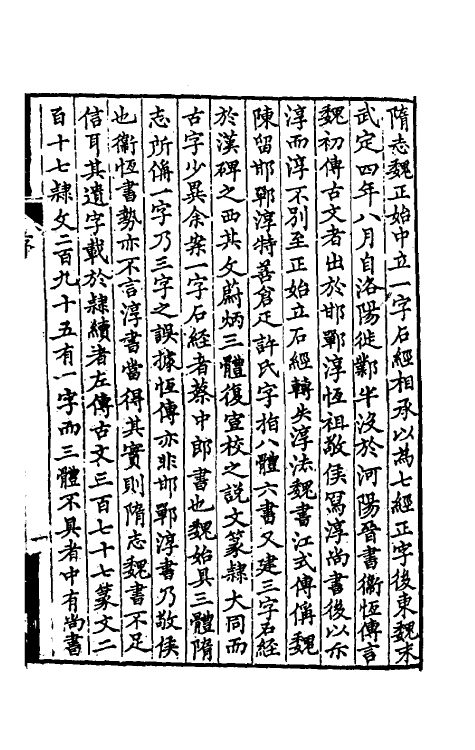 隋志魏正始中立一字石經相承以為七經正字後東魏末
武定四年八月自洛陽徙鄴半沒於河陽晉書衞恒傳言
魏初傳古文者出於邯鄲淳恒祖敬侯寫淳尚書後以示
淳而淳不別至正始立石經轉失淳法魏書江式傳偁魏
陳留邯鄲淳特善倉疋許氏字指八體六書又建三字石經
於漢碑之西其文蔚炳三體復宣校之說文篆隸大同而
古字少異余案一字石經者蔡中郎書也魏始具三體隋
志所偁一字乃三字之誤據恒傳亦非邯鄲淳書乃敬侯
也衞恒書勢亦不言淳書當得其實則隋志魏書不足
信耳其遺字載於隸續者左傳古文三百七十七篆文二
百十七隸文二百九十五有一字而三體不具者中有尚書
序
一